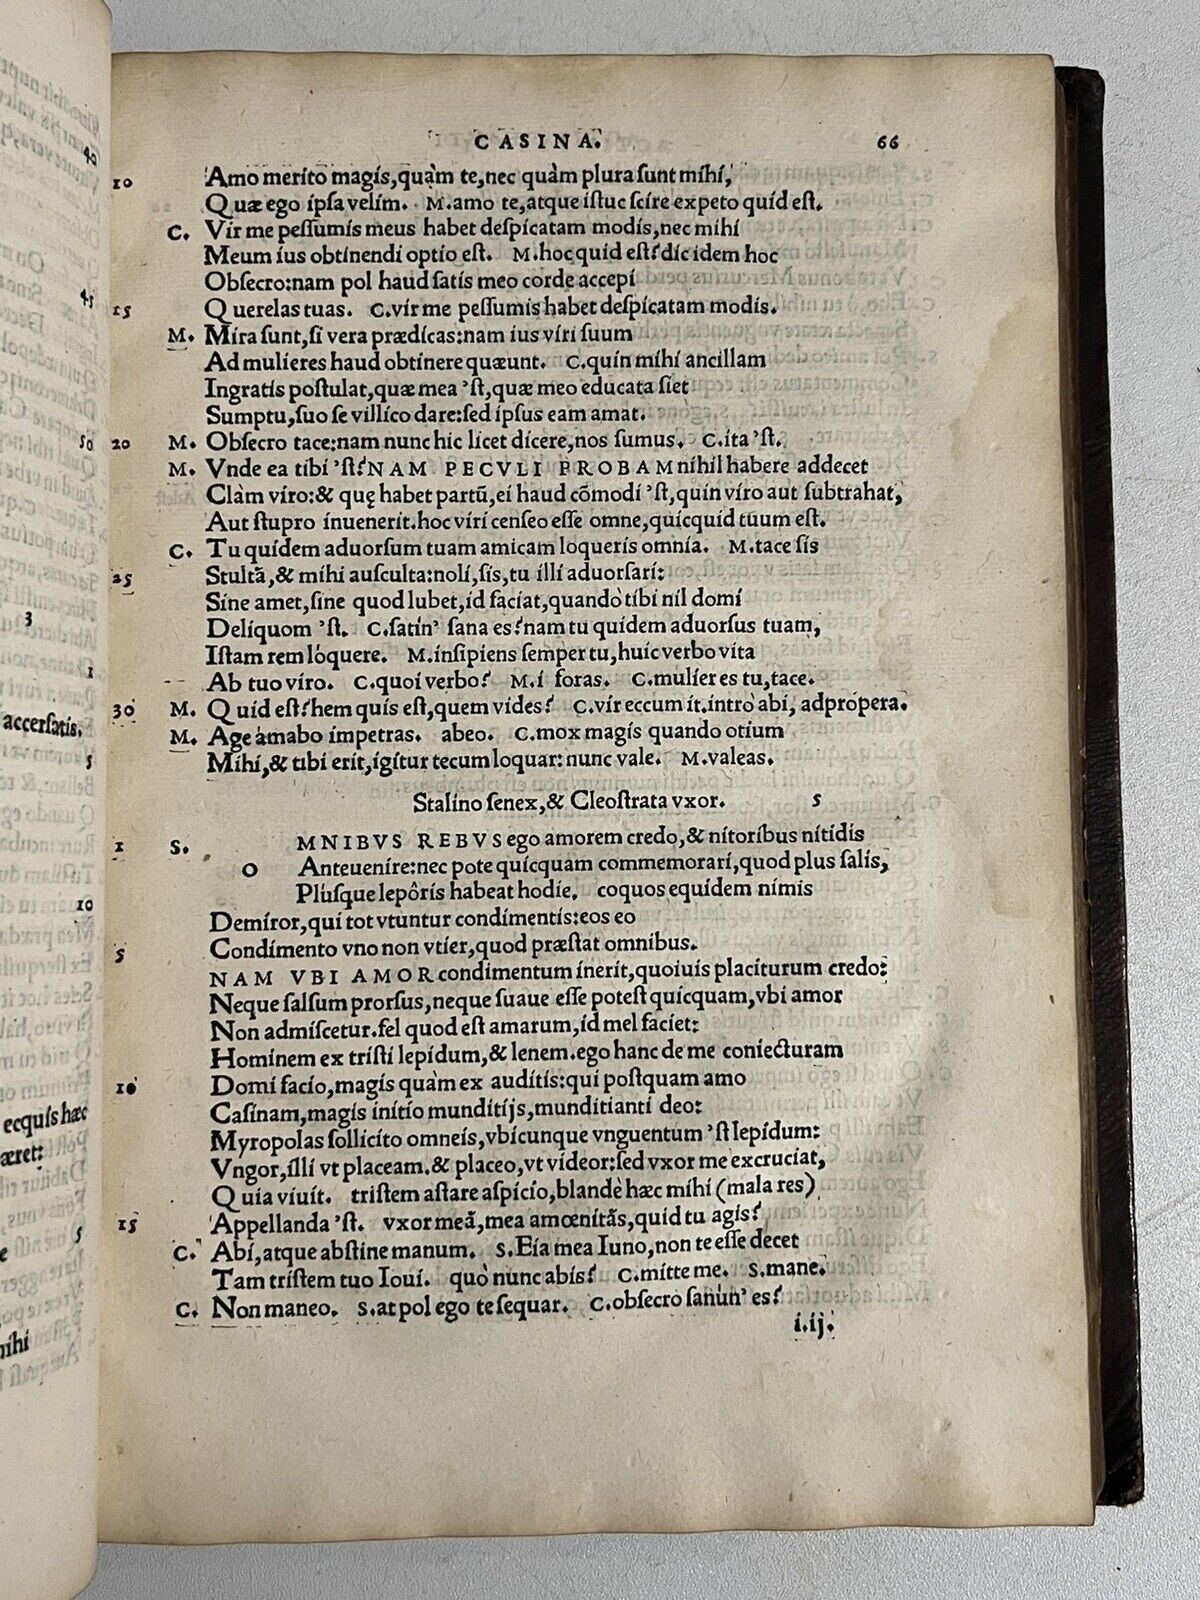 CASINA. 66
10 Amo merito magis,quàm te,nec quàm plura ſunt mihi,
Quæ ego ipſa velim. M.amo te,atque iſtuc ſcire expeto quid eſt.
C. Vir me peſſumis meus habet deſpicatam modis,nec mihi
Meum ius obtinendi optio eſt. M.hoc quid eſt? dic idem hoc
Obſecro:nam pol haud ſatis meo corde accepi
15 Querelas tuas. C.vir me peſſumis habet deſpicatam modis.
M. Mira ſunt,ſi vera prædicas:nam ius viri ſuum
Ad mulieres haud obtinere quæunt. C.quin mihi ancillam
Ingratis poſtulat,quæ mea 'ſt,quæ meo educata ſiet
Sumptu,ſuo ſe villico dare:ſed ipſus eam amat.
20 M. Obſecro tace:nam nunc hic licet dicere,nos ſumus. C.ita 'ſt.
M. Vnde ea tibi 'ſt? NAM PECVLI PROBAM nihil habere addecet
Clàm viro:& quę habet partū,ei haud cōmodi 'ſt,quin viro aut ſubtrahat,
Aut ſtupro inuenerit.hoc viri cenſeo eſſe omne,quicquid tuum eſt.
C. Tu quidem aduorſum tuam amicam loqueris omnia. M.tace ſis
25 Stultā,& mihi auſculta:noli,ſis,tu illi aduorſari:
Sine amet,ſine quod lubet,id faciat,quando tibi nil domi
Deliquom 'ſt. C.ſatin' ſana es? nam tu quidem aduorſus tuam,
Iſtam rem lóquere. M.inſipiens ſemper tu,huic verbo vita
Ab tuo viro. C.quoi verbo? M.i foras. C.mulier es tu,tace.
30 M. Quid eſt? hem quis eſt,quem vides? C.vir eccum it.intrò abi, adpropera.
M. Age amabo impetras. abeo. C.mox magis quando otium
Mihi,& tibi erit,igitur tecum loquar: nunc vale. M.valeas.
Stalino ſenex,& Cleoſtrata vxor. 5
1 S. MNIBVS REBVS ego amorem credo,& nitoribus nitidis
O Anteuenire:nec pote quicquam commemorari,quod plus ſalis,
Pluſque lepôris habeat hodie. coquos equidem nimis
Demiror,qui tot vtuntur condimentis:eos eo
5 Condimento vno non vtier,quod præſtat omnibus.
NAM VBI AMOR condimentum inerit,quoiuis placiturum credo:
Neque ſalſum prorſus,neque ſuaue eſſe poteſt quicquam,vbi amor
Non admiſcetur.fel quod eſt amarum,id mel faciet:
Hominem ex triſti lepidum,& lenem.ego hanc de me coniecturam
10 Domi facio,magis quàm ex auditis:qui poſtquam amo
Caſinam,magis initio munditijs,munditianti deo:
Myropolas ſollicito omneis,vbicunque vnguentum 'ſt lepidum:
Vngor,illi vt placeam.& placeo,vt videor:ſed vxor me excruciat,
Quia viuit. triſtem aſtare aſpicio,blandè hæc mihi (mala res)
15 Appellanda 'ſt. vxor meā,mea amœnitās,quid tu agis?
C. Abi,atque abſtine manum. S.Eia mea Iuno,non te eſſe decet
Tam triſtem tuo Ioui. quò nunc abis? C.mitte me. S.mane.
C. Non maneo. S.at pol ego te ſequar. C.obſecro ſanun' es?
i.ij.
40
45
50
3
1
accerſatis.
5
10
ecquis hæc
æret:
5
mihi